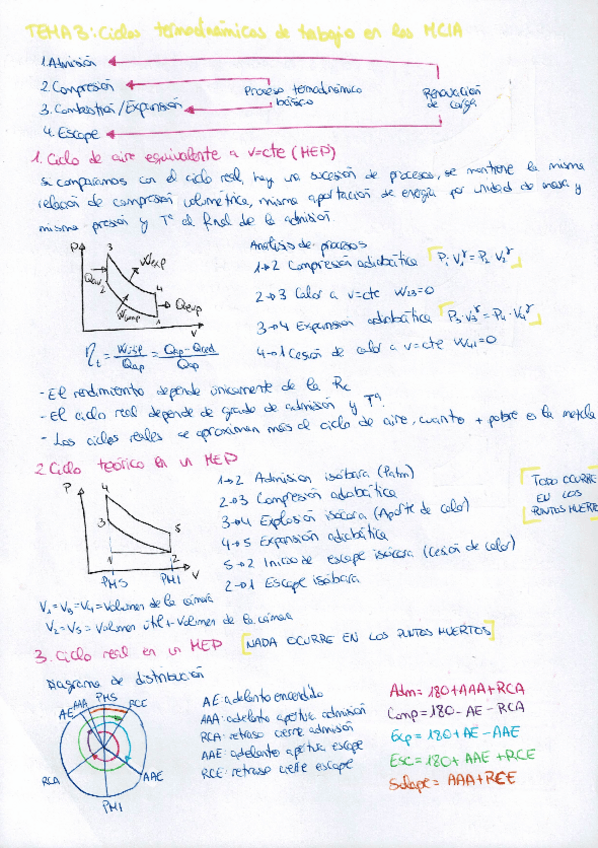 TEMA 3: Ciclos termodinámicos de trabajo en los MCIA
1. Admisión
2. Compresión
3. Combustión/Expansión
4. Escape
Proceso termodinámico
básico
Renovación
de carga
1. Ciclo de aire equivalente a v=cte (MEP)
Si comparamos con el ciclo real, hay una sucesión de procesos, se mantiene la misma
relación de compresión volumétrica, misma aportación de energía por unidad de masa y
misma presión y Tª al final de la admisión.
P
3
Wexp
Qad
4
Qexp
Wcomp
1
V
Análisis de procesos
1→2 Compresión adiabática P₁·V₁^γ = P₂·V₂^γ
2→3 Calor a v=cte W₂₃=0
3→4 Expansión adiabática P₃·V₃^γ = P₄·V₄^γ
4→1 Cesión de calor a v=cte W₄₁=0
- El rendimiento depende únicamente de la Rc
- El ciclo real depende de grado de admisión y Tª
- Los ciclos reales se aproximan más al ciclo de aire, cuanto + pobre es la mezcla
2 Ciclo teórico en un MEP
P
4
3
5
1
2
PMS
PMI
V
1→2 Admision isóbara (Patm)
2→3 Compresión adiabática
3→4 Explosión isócora (Aporte de calor)
4→5 Expansión adiabática
5→2 Inicio de escape isócora (Cesión de calor)
2→1 Escape isóbara
TODO OCURRE
EN LOS
PUNTOS MUERTOS
V₁=V₃=V₄= Volumen de la cámara
V₂=V₅= Volumen útil + Volumen de la cámara
3. Ciclo real en un MEP [NADA OCURRE EN LOS PUNTOS MUERTOS]
Diagrama de distribución
AE
AAA
PMS
RCE
RCA
AAE
PMI
AE: adelanto encendido
AAA: adelanto apertura admisión
RCA: retraso cierre admisión
AAE: adelanto apertura escape
RCE: retraso cierre escape
Adm = 180+AAA+RCA
Comp = 180-AE-RCA
Exp = 180+AE-AAE
Esc = 180+AAE+RCE
Solape = AAA+RCE